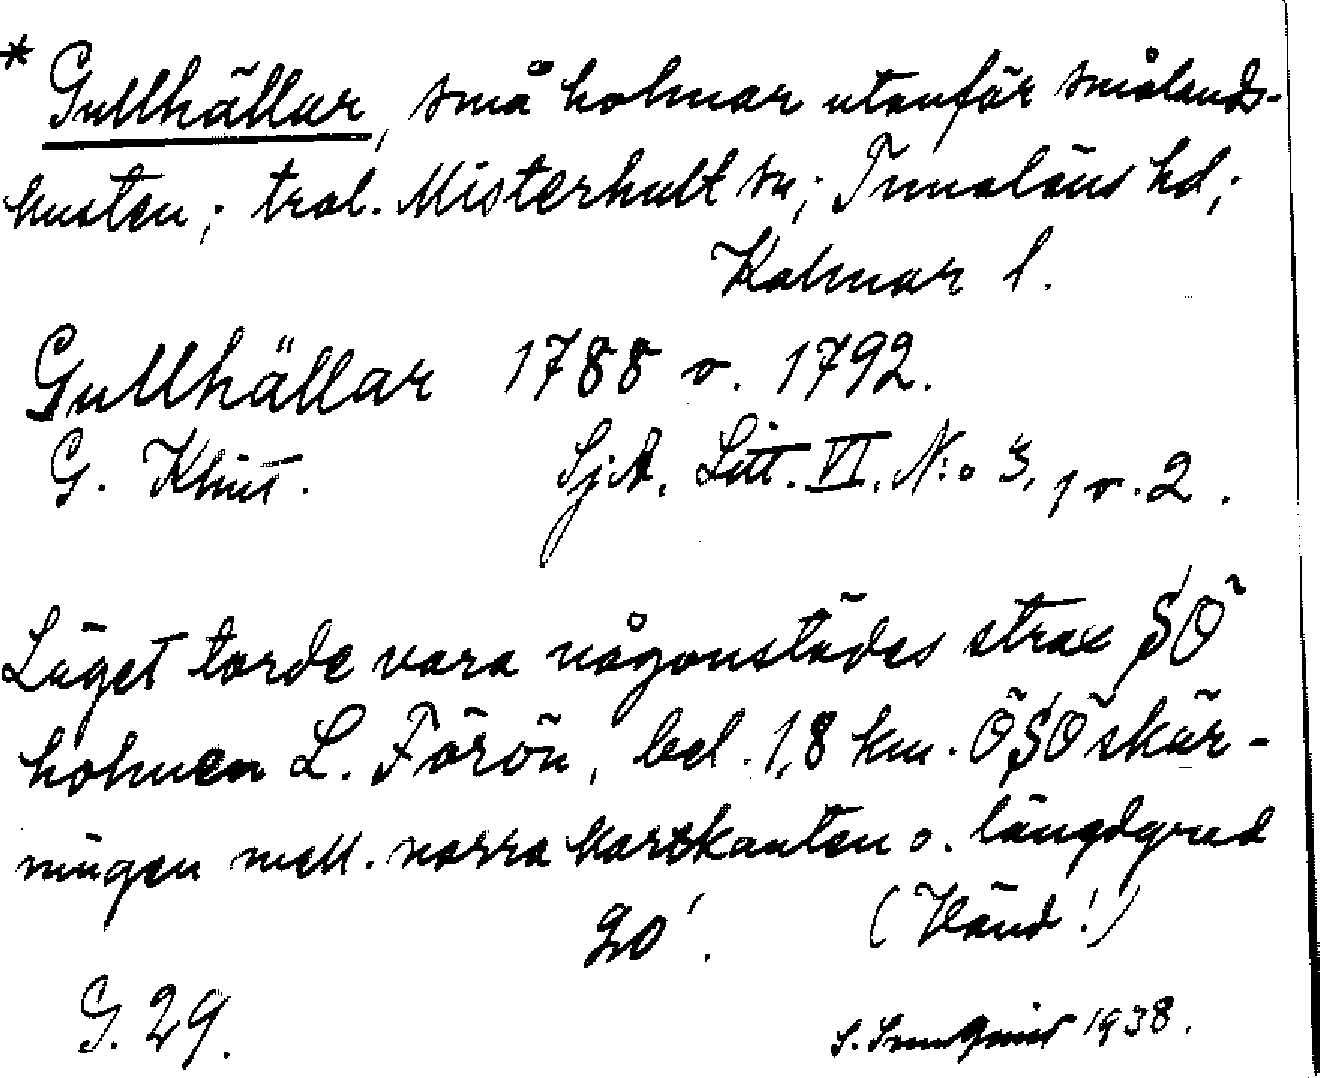 * Gullhällar, små holmar utanför smålands-
kusten; trol. Misterhult sn; Tunaläns hd;
Kalmar l.
Gullhällar 1788 o. 1792.
G. Klint. SjA. Litt. VI. N:o 3, 1 o. 2.
Läget torde vara någonstädes strax SÖ
holmen L. Förön, bel. 1,8 km. ÖSÖ skär-
ningen mell. norra kartkanten o. längdgrad
20'. (Vänd!)
G. 29. 1938.